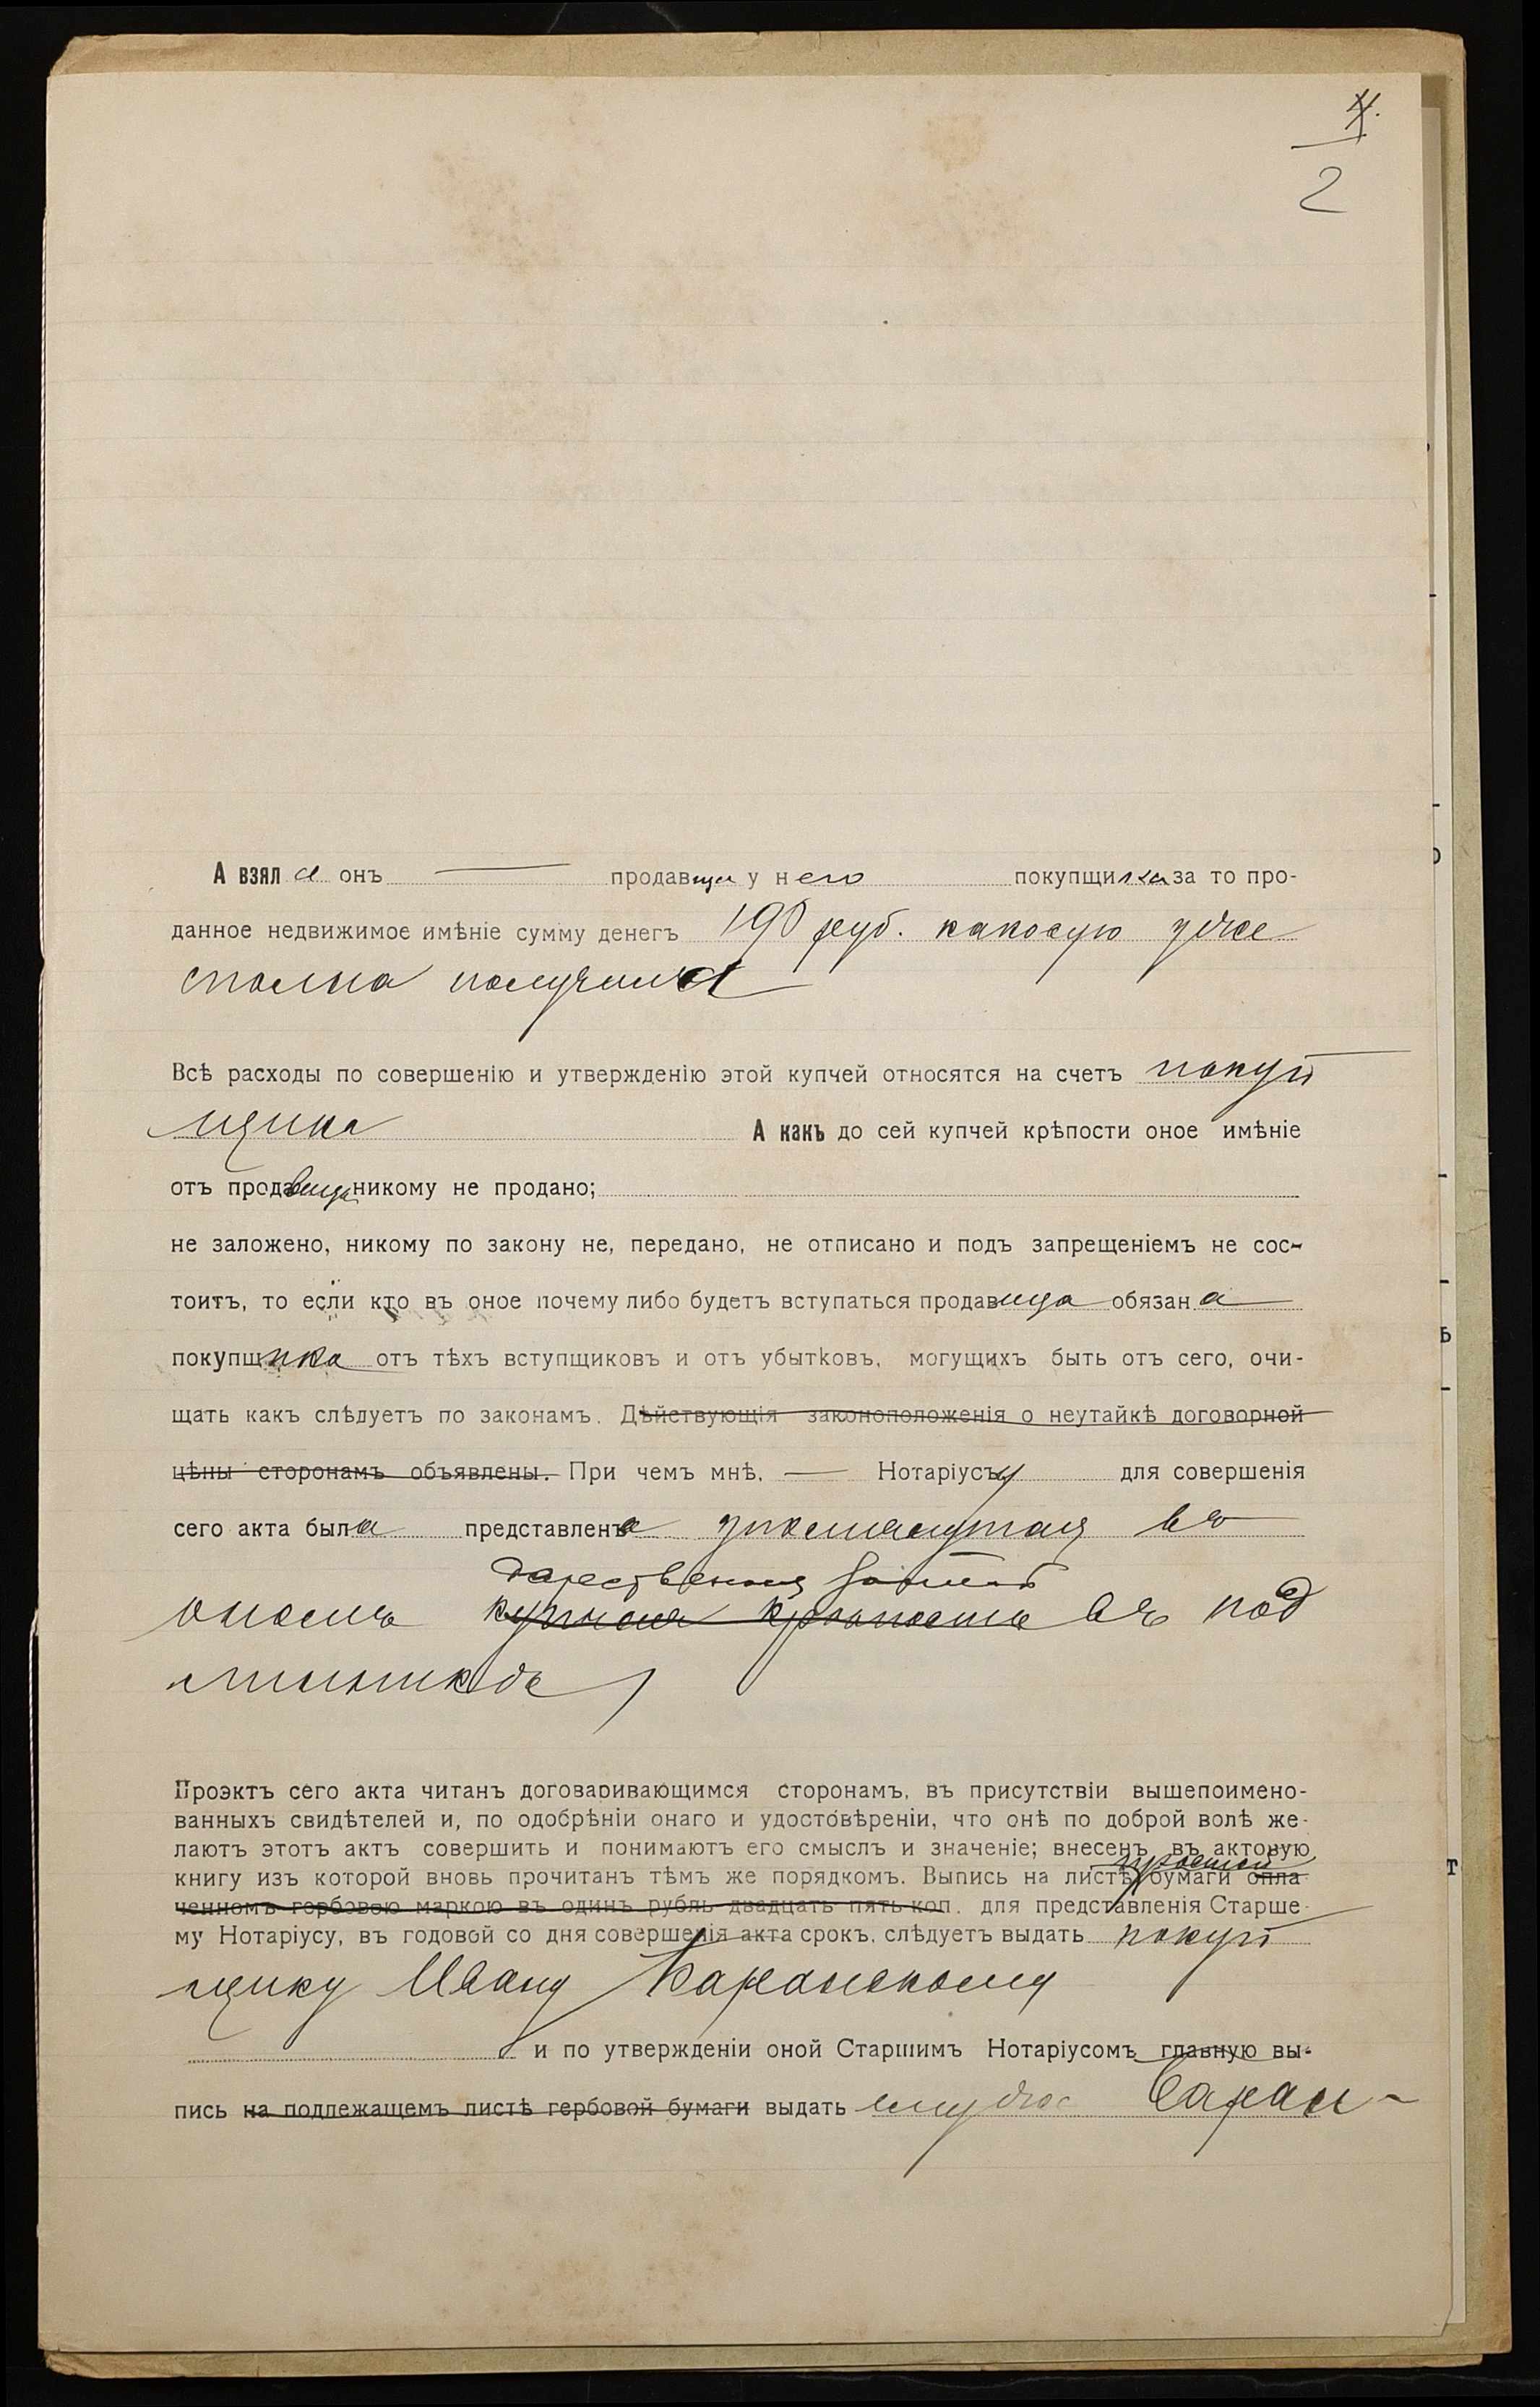 4.
2
А взяла онъ — продавица у него покупщика за то про-
данное недвижимое имѣніе сумму денегъ 190 руб. каковую уже
сполна получила
Всѣ расходы по совершенію и утвержденію этой купчей относятся на счетъ покуп
щика А какъ до сей купчей крѣпости оное имѣніе
отъ продавицы никому не продано;
не заложено, никому по закону не, передано, не отписано и подъ запрещеніемъ не сос-
тоитъ, то если кто въ оное почему либо будетъ вступаться продавица обязана
покупщика отъ тѣхъ вступщиковъ и отъ убытковъ, могущихъ быть отъ сего, очи-
щать какъ слѣдуетъ по законамъ. Дѣйствующія законоположенія о неутайкѣ договорной
цѣны сторонамъ объявлены. При чемъ мнѣ, — Нотаріусу для совершенія
сего акта была представлена упомянутая въ
дарственная запись
ономъ купчая крѣпость въ под
линникѣ
Проэктъ сего акта читанъ договаривающимся сторонамъ, въ присутствіи вышепоимено-
ванныхъ свидѣтелей и, по одобрѣніи онаго и удостовѣреніи, что онѣ по доброй волѣ же-
лаютъ этотъ актъ совершить и понимаютъ его смыслъ и значеніе; внесенъ въ актовую
простой
книгу изъ которой вновь прочитанъ тѣмъ же порядкомъ. Выпись на листѣ бумаги опла
ченномъ гербовою маркою въ одинъ рубль двадцать пять коп. для представленія Старше-
му Нотаріусу, въ годовой со дня совершенія акта срокъ, слѣдуетъ выдать покуп
щику Ивану Каранскому
и по утвержденіи оной Старшимъ Нотаріусомъ главную вы-
пись на подлежащемъ листѣ гербовой бумаги выдать ему же